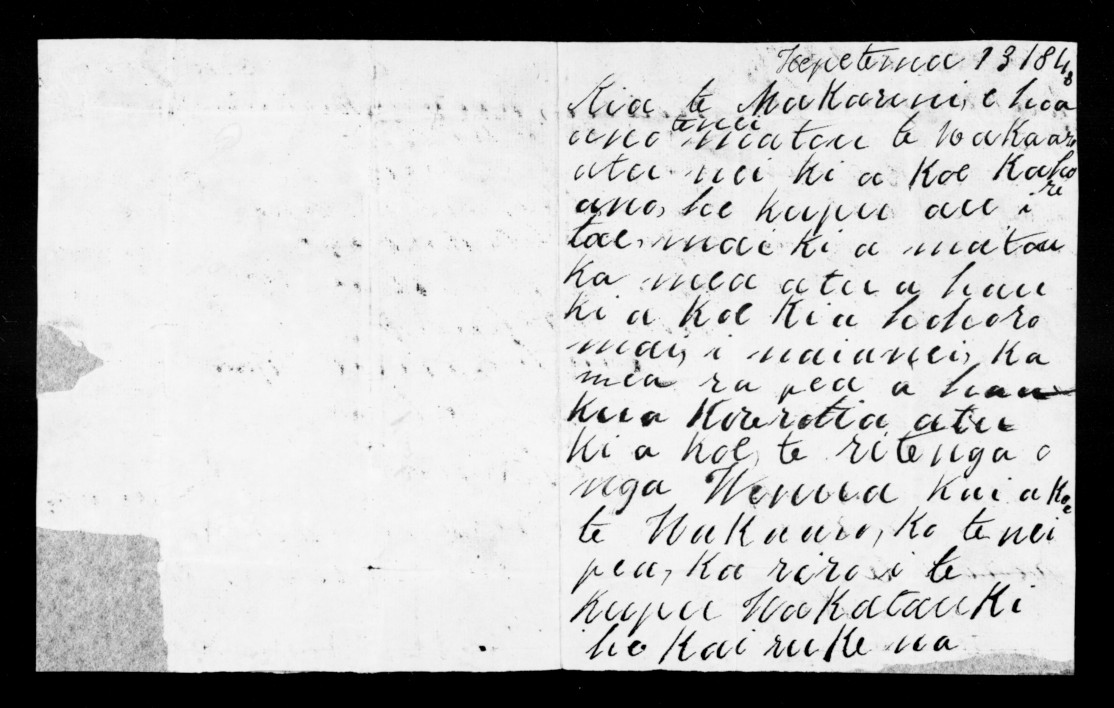 Hepetema 13 1848
Kia te Makarini, e hoa
ano tenei matou te wakaaro
atu nei ki a koe kahore
ano, he kupu au i
tae, mai ki a matou
ka mea atu a hau
ki a koe kia hohoro
mai, i naianei, ka
mea ra pea a hau
kua korerotia atu
ki a koe, te ritenga o
nga Wenua kai a koe
te Wakaaro, ko te nei
pea, ka riro i te
kupu Wakatauki
ho kai ruke na